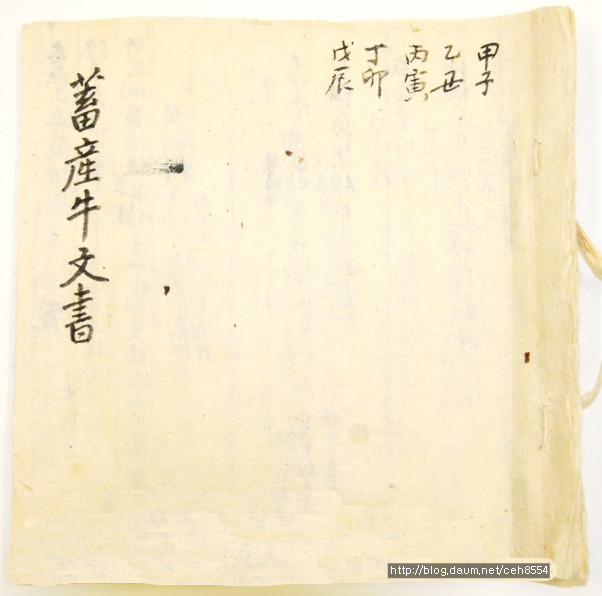 甲子
乙丑
丙寅
丁卯
戊辰
蓄産牛文書
http://blog.daum.net/ceh8554